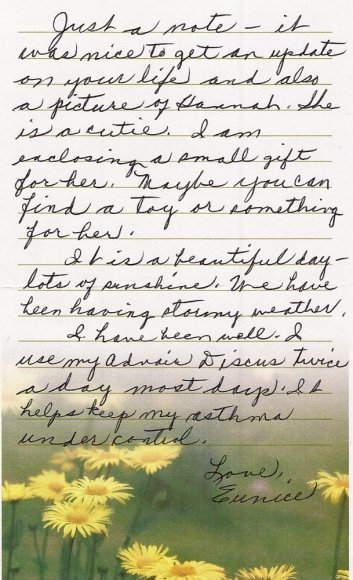 Just a note - it
was nice to get an update
on your life and also
a picture of Hannah. She
is a cutie. I am
enclosing a small gift
for her. Maybe you can
find a toy or something
for her.
It is a beautiful day -
lots of sunshine. We have
been having stormy weather.
I have been well. I
use my Advair Discus twice
a day most days. It
helps keep my asthma
under control.
Love,
Eunice